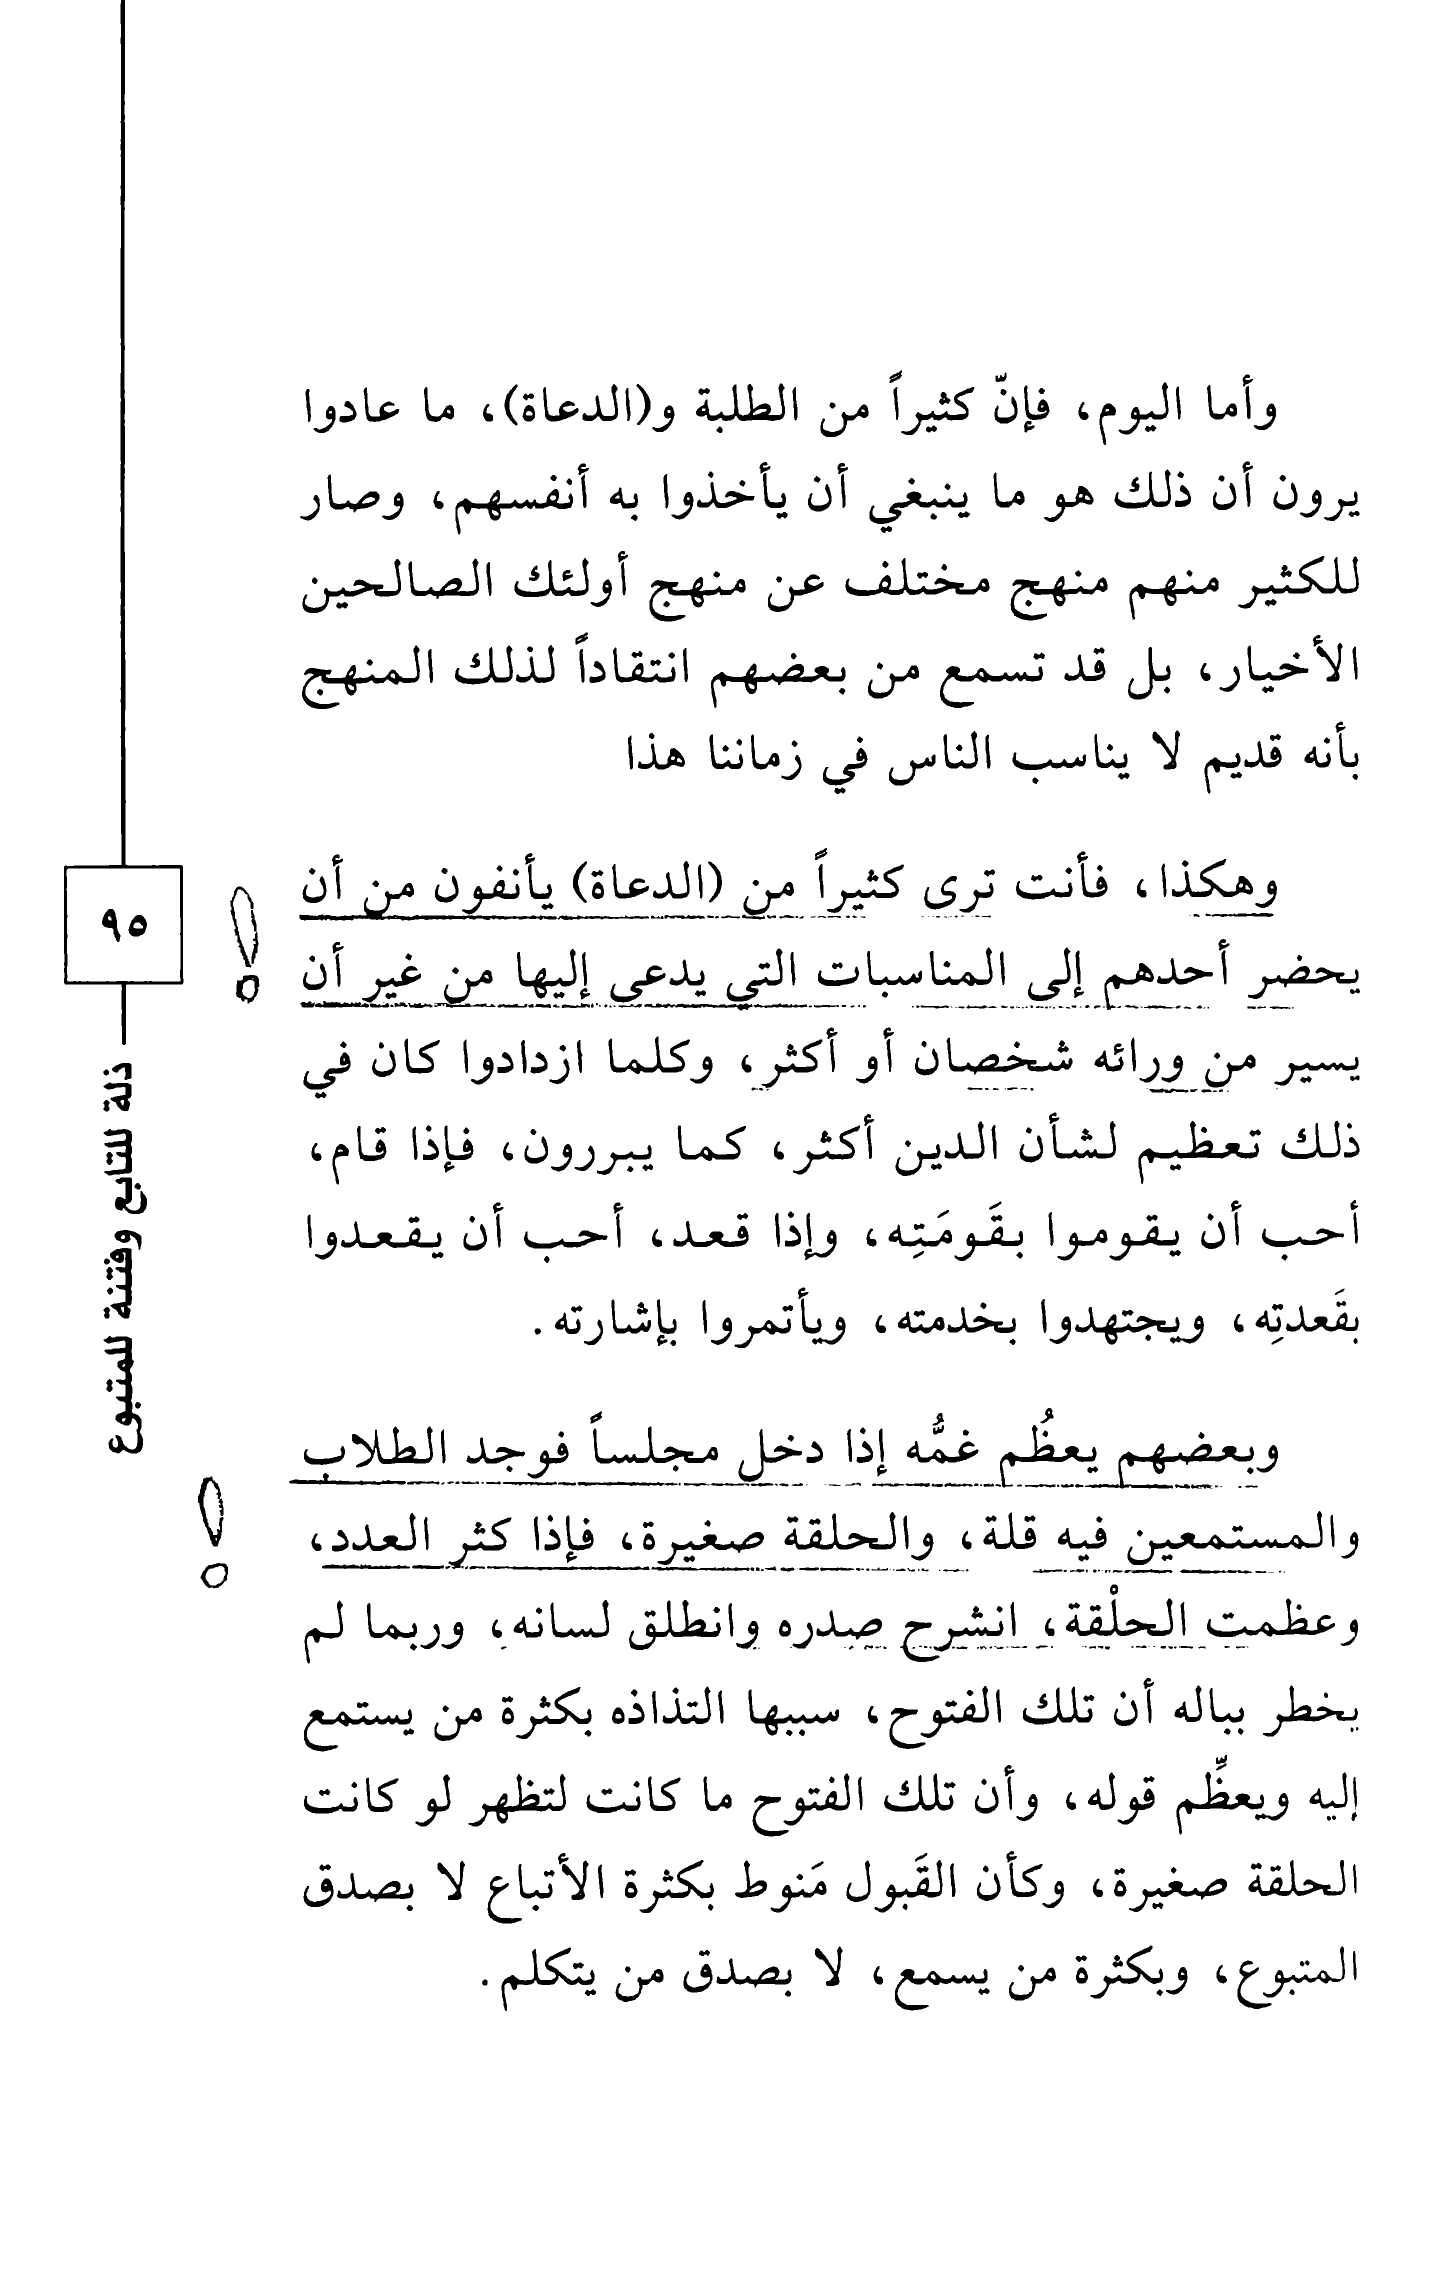 وأما اليوم، فإنّ كثيراً من الطلبة و(الدعاة)، ما عادوا
يرون أن ذلك هو ما ينبغي أن يأخذوا به أنفسهم، وصار
للكثير منهم منهج مختلف عن منهج أولئك الصالحين
الأخيار، بل قد تسمع من بعضهم انتقاداً لذلك المنهج
بأنه قديم لا يناسب الناس في زماننا هذا
وهكذا، فأنت ترى كثيراً من (الدعاة) يأنفون من أن
يحضر أحدهم إلى المناسبات التي يدعى إليها من غير أن
يسير من ورائه شخصان أو أكثر، وكلما ازدادوا كان في
ذلك تعظيم لشأن الدين أكثر، كما يبررون، فإذا قام،
أحب أن يقوموا بقَومَتِه، وإذا قعد، أحب أن يقعدوا
بقَعدتِه، ويجتهدوا بخدمته، ويأتمروا بإشارته.
وبعضهم يعظُم غمُّه إذا دخل مجلساً فوجد الطلاب
والمستمعين فيه قلة، والحلقة صغيرة، فإذا كثر العدد،
وعظمت الحلْقة، انشرح صدره وانطلق لسانه، وربما لم
يخطر بباله أن تلك الفتوح، سببها التذاذه بكثرة من يستمع
إليه ويعظِّم قوله، وأن تلك الفتوح ما كانت لتظهر لو كانت
الحلقة صغيرة، وكأن القَبول مَنوط بكثرة الأتباع لا بصدق
المتبوع، وبكثرة من يسمع، لا بصدق من يتكلم.
٩٥
ذلة للتابع وفتنة للمتبوع
!
!